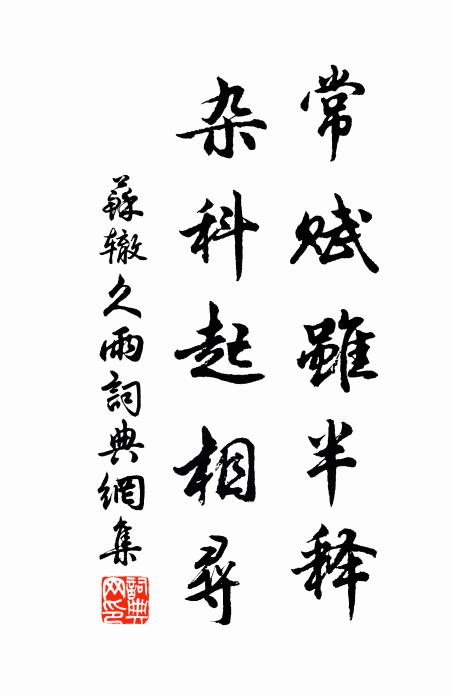 常赋雖半释
杂科起相尋
蘇辙久雨詞典網集
詞典网印